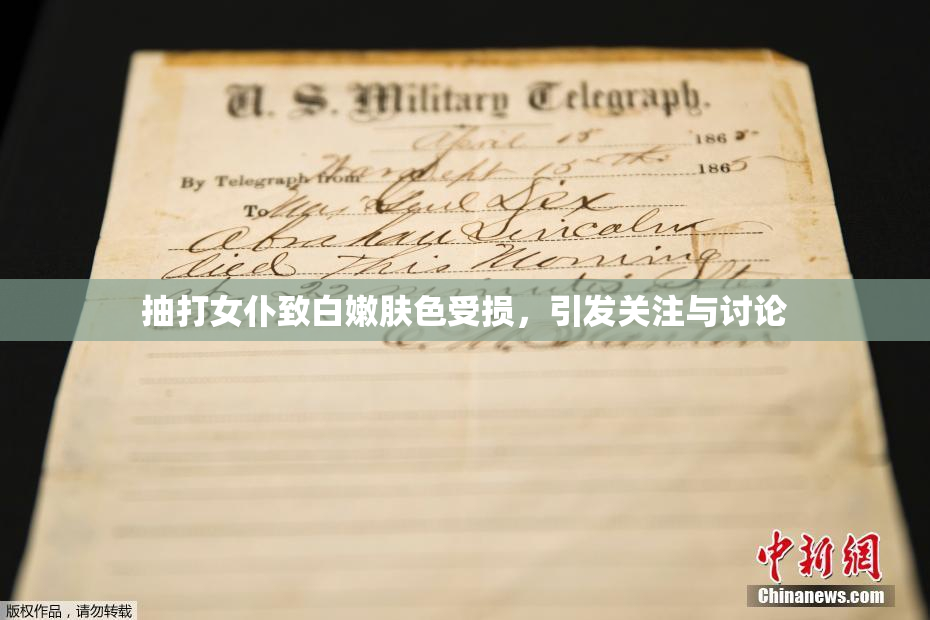 U. S. Military Telegraph.
April 15 1865
By Telegraph from War Dept 15th 1865
To Maj Genl Dix
Abraham Lincoln
died This Morning
at 22 minutes after
抽打女仆致白嫩肤色受损，引发关注与讨论
E. M. Stanton
中新网
Chinanews.com
版权作品，请勿转载